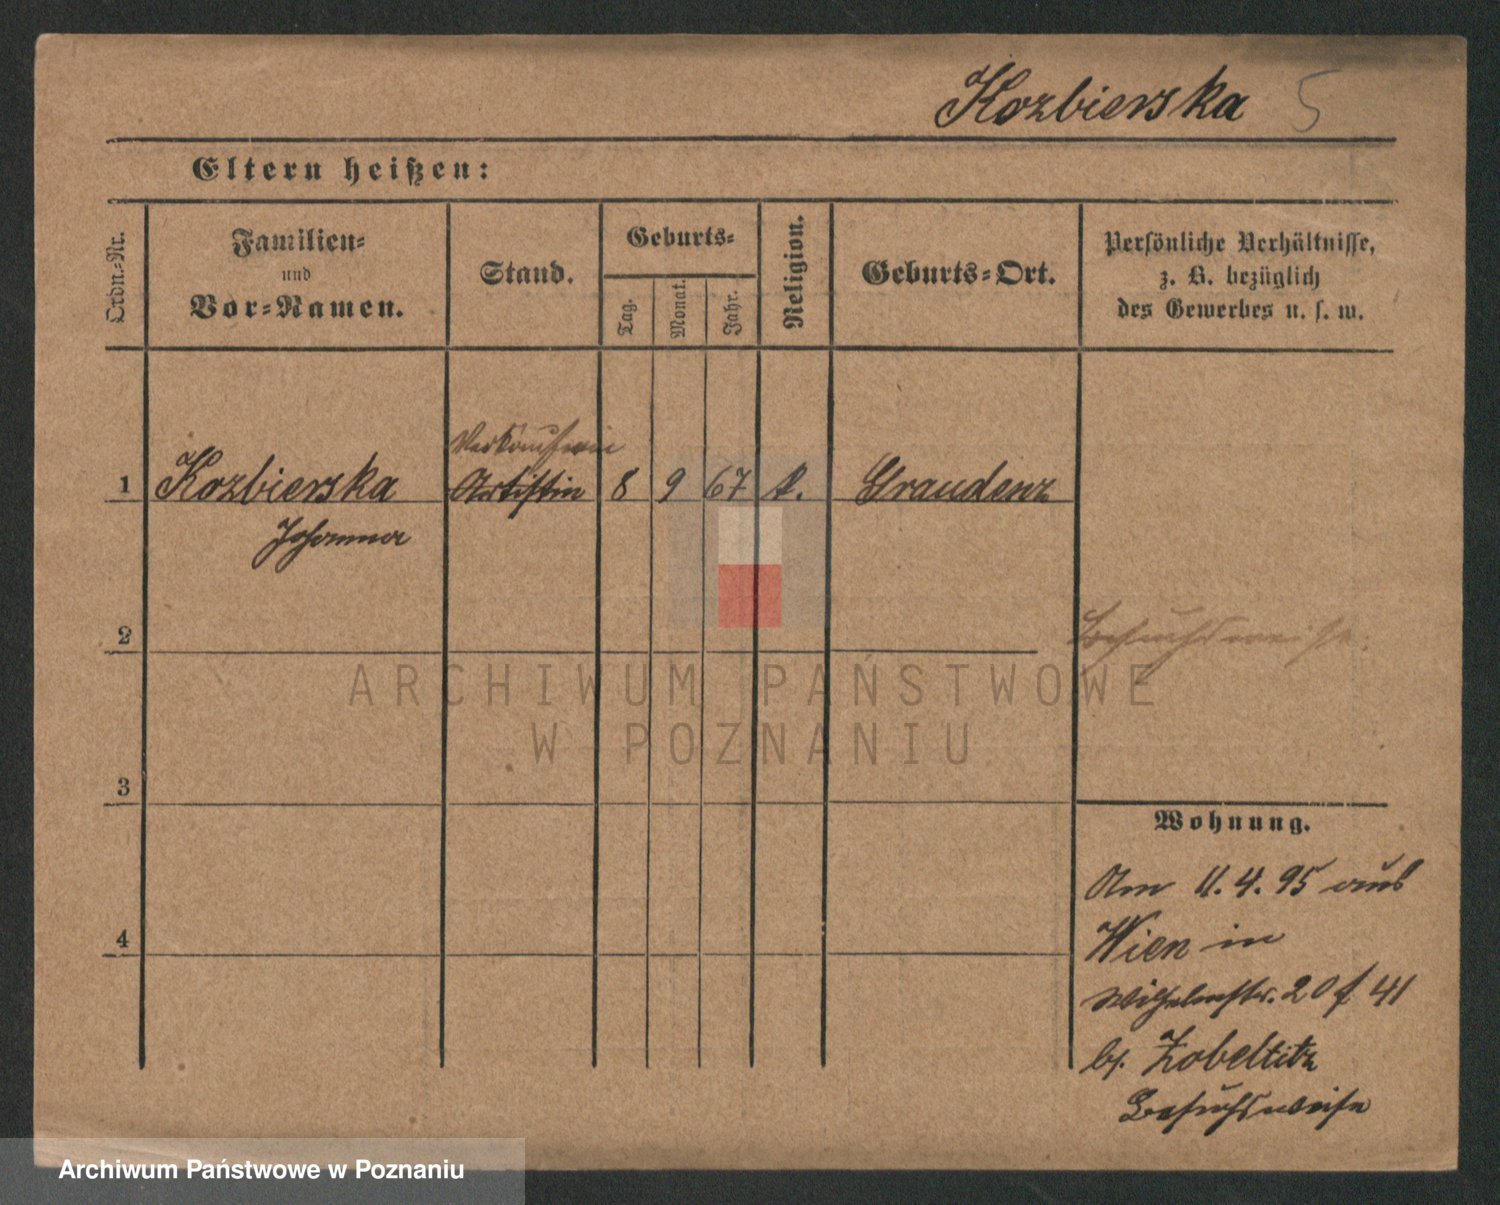 Kozbierska 5
Eltern heißen:
Ordn.-Nr.
Familien-
und
Vor-Namen.
Stand.
Geburts-
Tag.
Monat.
Jahr.
Religion.
Geburts-Ort.
Persönliche Verhältnisse,
z. B. bezüglich
des Gewerbes u. s. w.
Verkäuferin
1 Kozbierska Artistin 8 9 67 k. Graudenz
Johanna
2
Besuchsweise.
3
4
Wohnung.
Am 11.4.95 aus
Wien in
Wilhelmstr. 20 f 41
b. Zobeltitz
Besuchsweise
ARCHIWUM PAŃSTWOWE
W POZNANIU
Archiwum Państwowe w Poznaniu